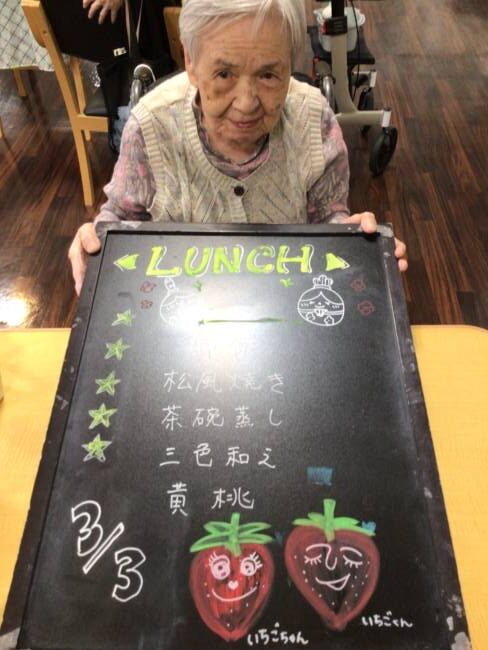 LUNCH
松風焼き
茶碗蒸し
三色和え
黄桃
3/3
いちごちゃん
いちごくん